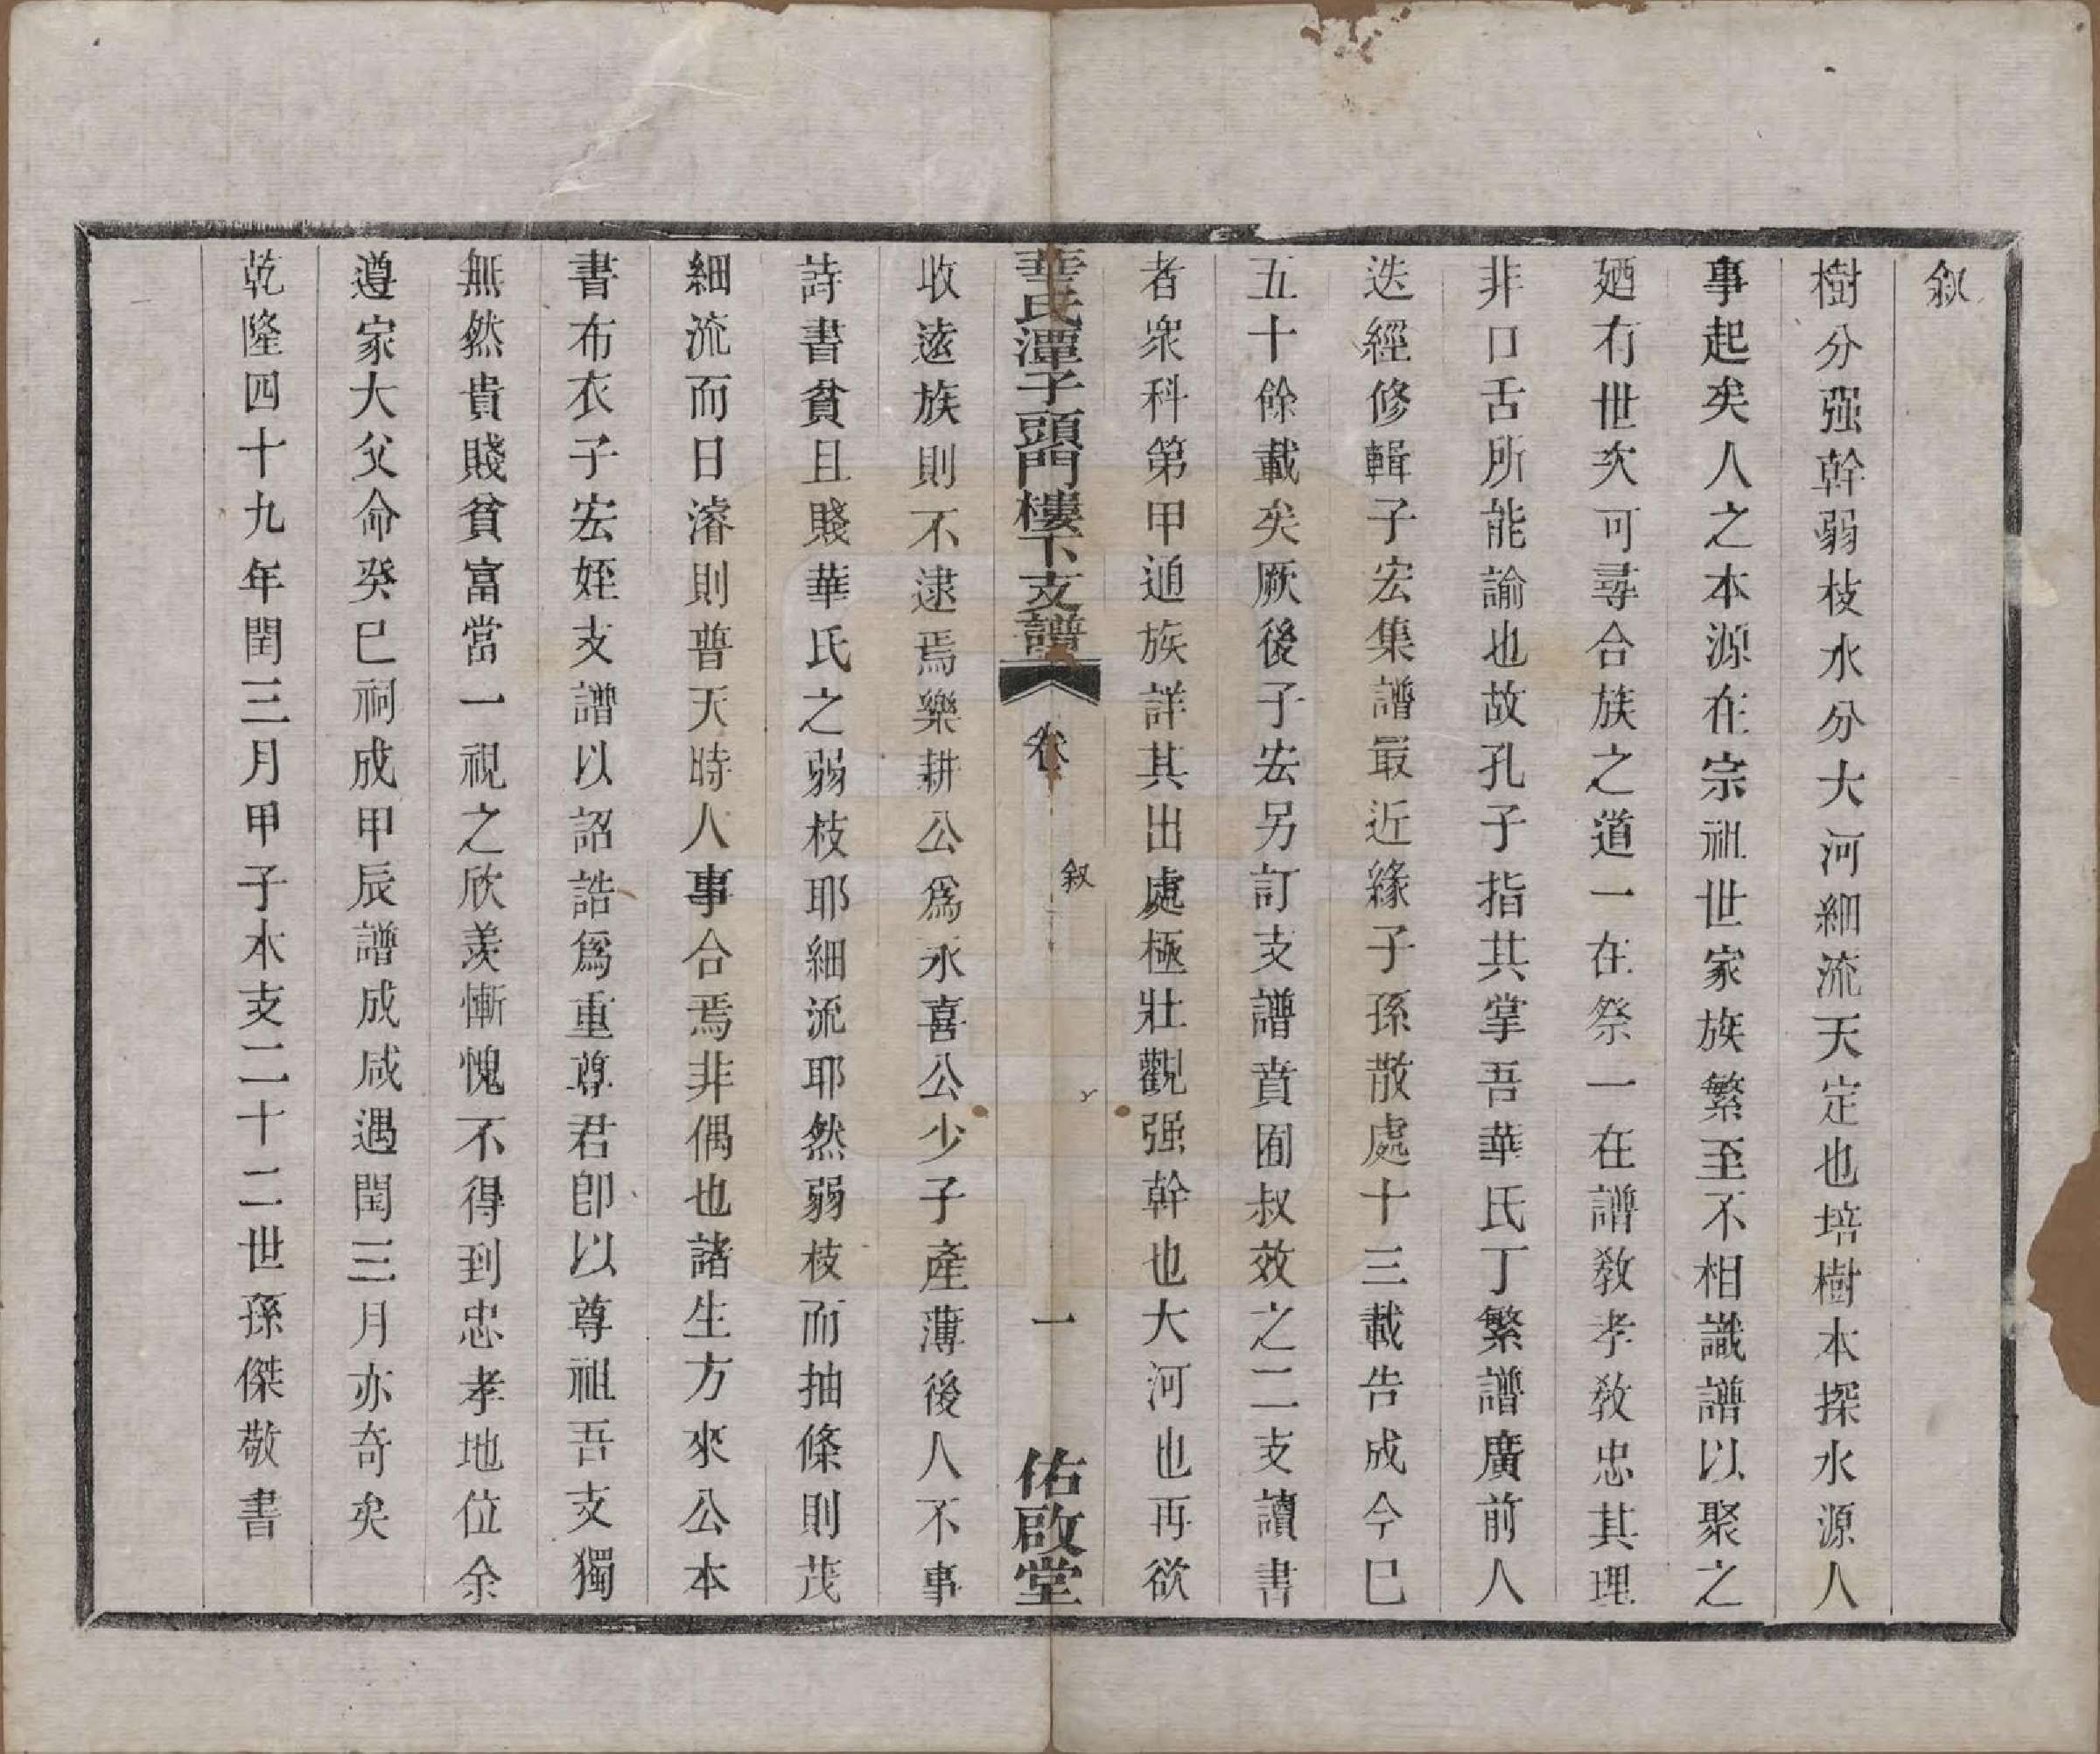 叙
樹分强幹弱枝水分大河細流天定也培樹本探水源人
事起矣人之本源在宗祖世家族繁至不相識譜以聚之
廼有世次可尋合族之道一在祭一在譜教孝教忠其理
非口舌所能諭也故孔子指其掌吾華氏丁繁譜廣前人
迭經修輯子宏集譜最近緣子孫散處十三載告成今巳
五十餘載矣厥後子宏另訂支譜賁囿叔效之二支讀書
者衆科第甲通族詳其出處極壯觀强幹也大河也再欲
華氏潭子頭門樓下支譜 卷 叙 一 佑啟堂
收遠族則不逮焉樂耕公爲永喜公少子產薄後人不事
詩書貧且賤華氏之弱枝耶細流耶然弱枝而抽條則茂
細流而日濬則普天時人事合焉非偶也諸生方來公本
書布衣子宏姪支譜以詔誥爲重尊君卽以尊祖吾支獨
無然貴賤貧富當一視之欣羨慚愧不得到忠孝地位余
遵家大父命癸巳祠成甲辰譜成咸遇閏三月亦奇矣
乾隆四十九年閏三月甲子本支二十二世孫傑敬書